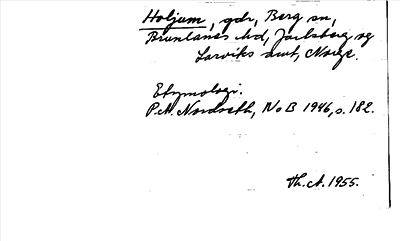 Holjum, gdr, Berg sn,
Brunlanes hd, Jarlsberg og
Larviks amt, Norge.
Etymologi.
P.M. Nordseth, NoB 1946, s. 182.
Th. A. 1955.